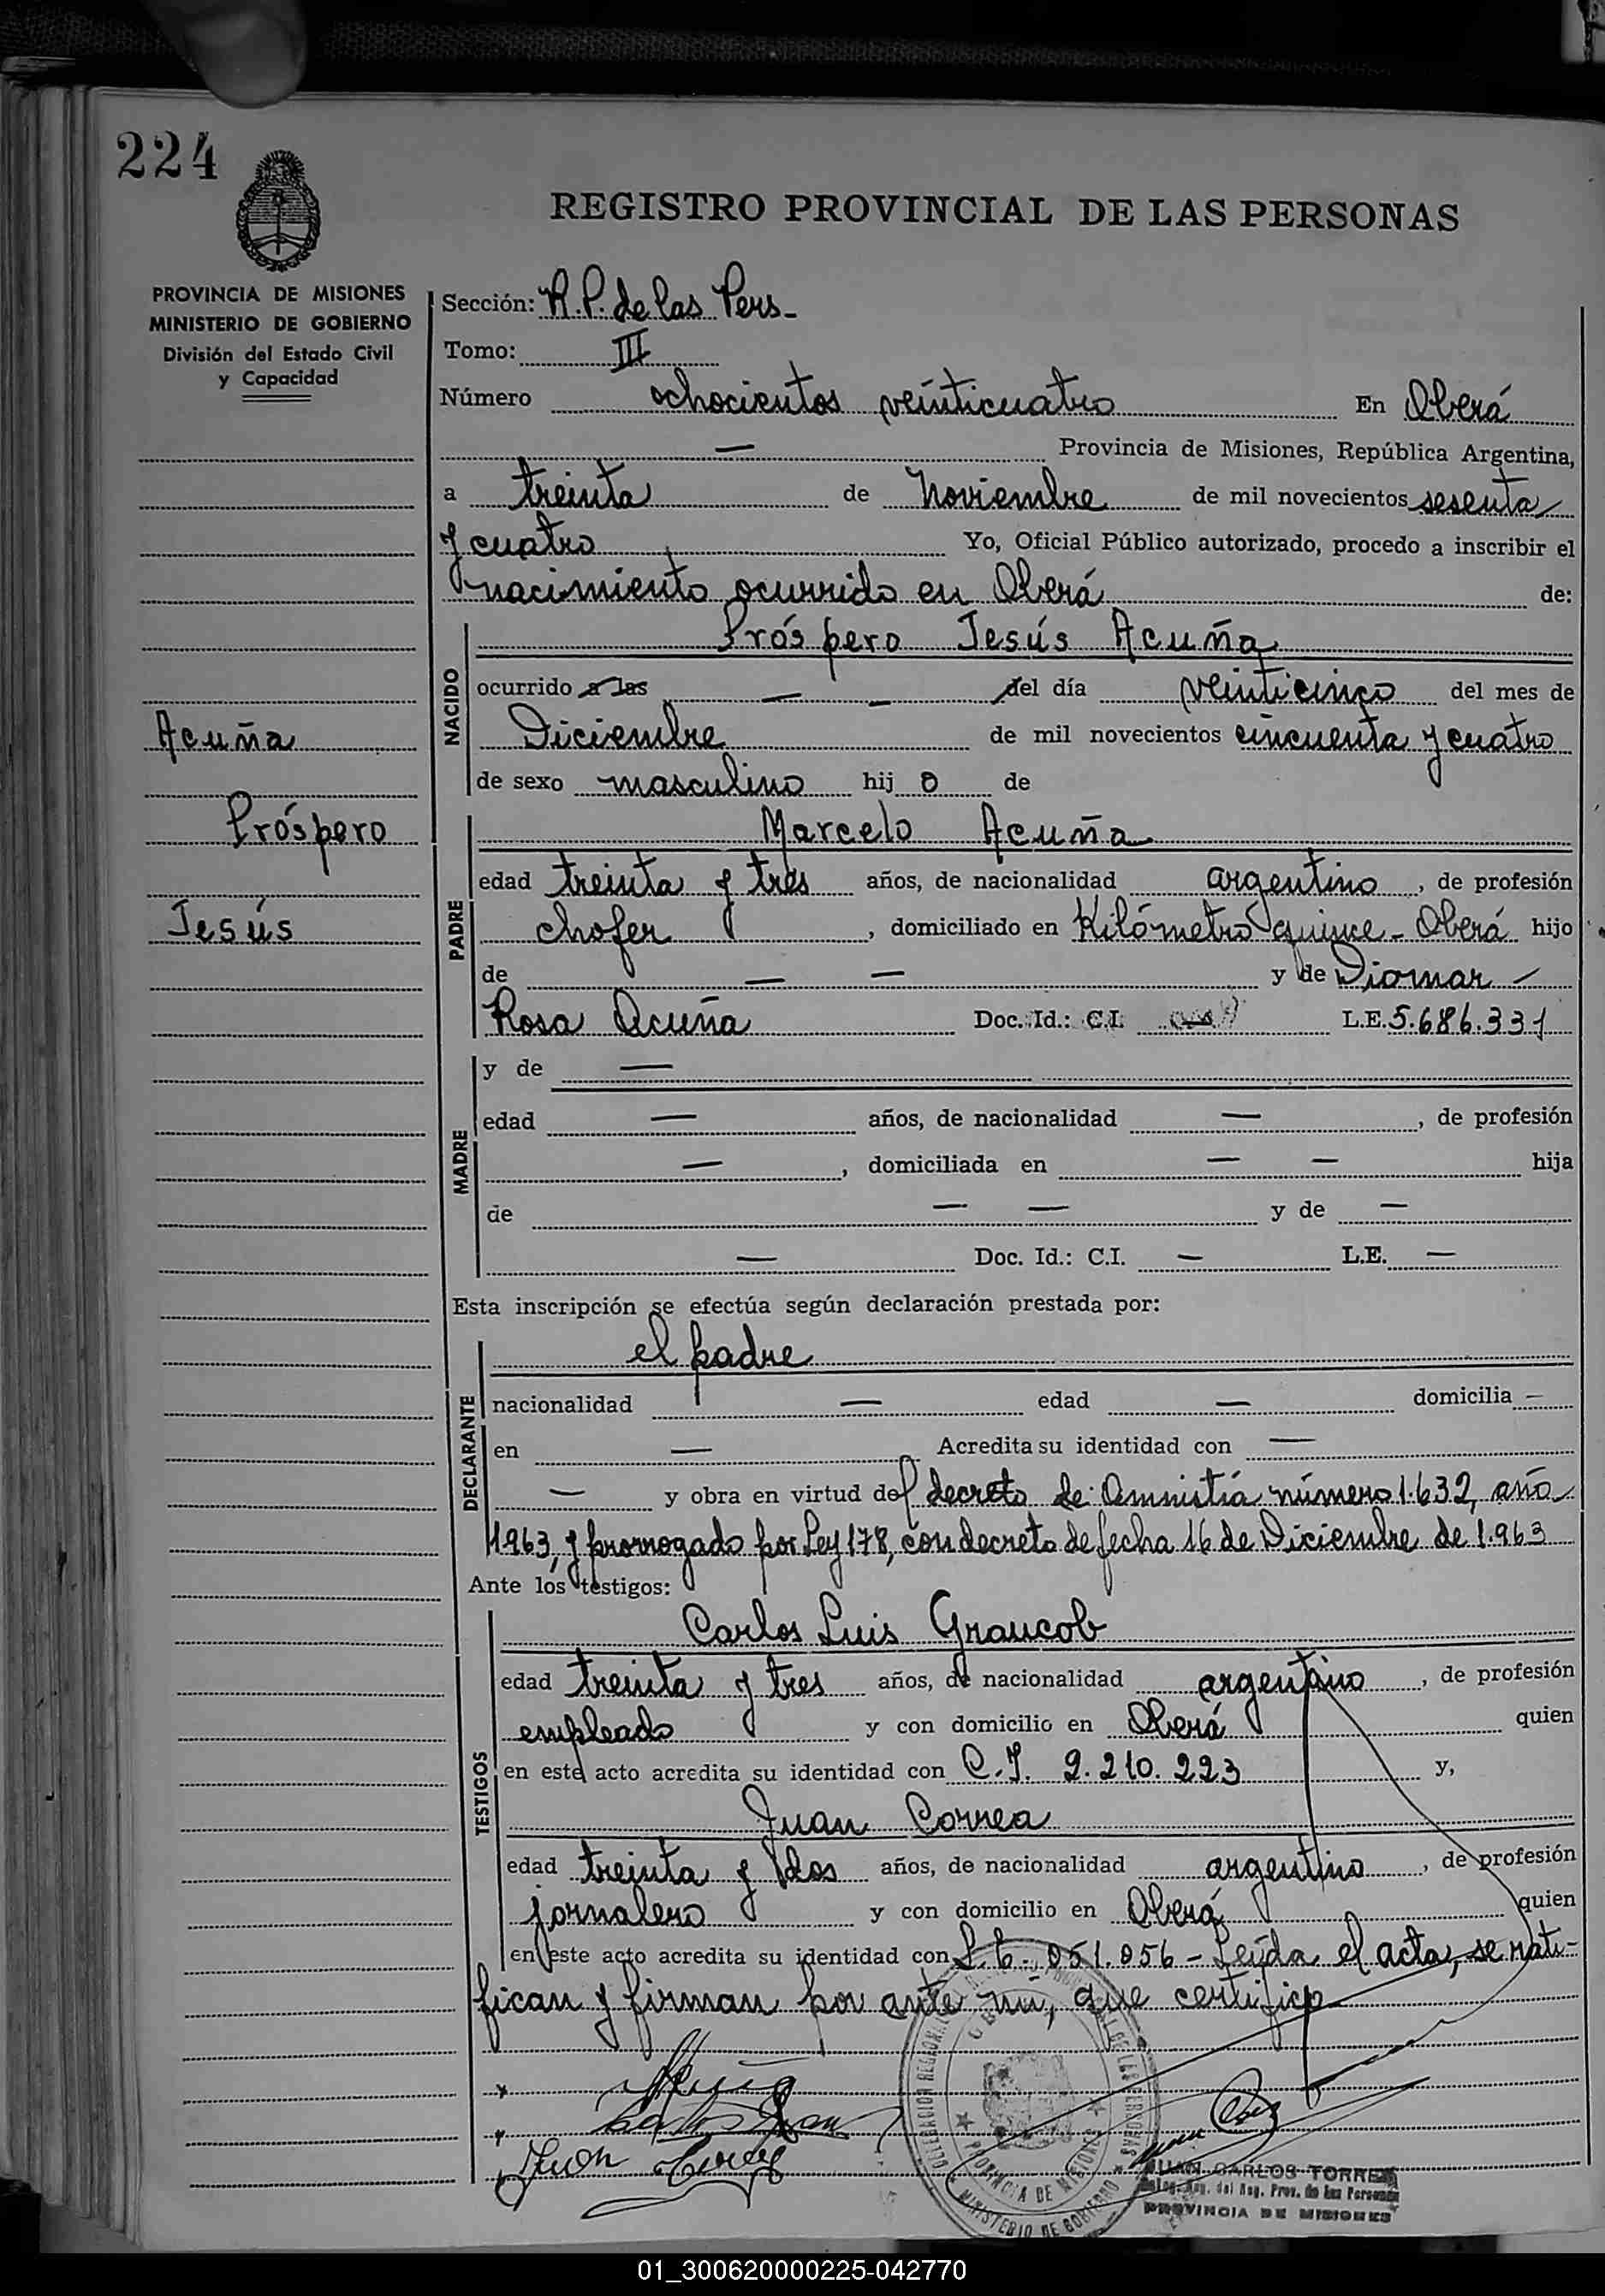 224
REGISTRO PROVINCIAL DE LAS PERSONAS
PROVINCIA DE MISIONES
MINISTERIO DE GOBIERNO
División del Estado Civil
y Capacidad
Sección: R.P. de las Pers-
Tomo: III
Número ochocientos veinticuatro En Oberá
— Provincia de Misiones, República Argentina,
a treinta de Noviembre de mil novecientos sesenta
y cuatro Yo, Oficial Público autorizado, procedo a inscribir el
nacimiento ocurrido en Oberá de:
NACIDO
Próspero Jesús Acuña
ocurrido a las — — del día veinticinco del mes de
Acuña
Diciembre de mil novecientos cincuenta y cuatro
de sexo masculino hij o de
Próspero
PADRE
Marcelo Acuña
edad treinta y tres años, de nacionalidad argentino, de profesión
Jesús
chofer, domiciliado en Kilómetro quince - Oberá hijo
de — — y de Diomar —
Rosa Acuña Doc. Id.: C.I. L.E. 5.686.331
MADRE
y de —
edad — años, de nacionalidad —, de profesión
—, domiciliada en — — hija
de — — y de —
— Doc. Id.: C.I. — L.E. —
Esta inscripción se efectúa según declaración prestada por:
DECLARANTE
el padre
nacionalidad — edad — domicilia —
en — Acredita su identidad con —
— y obra en virtud del decreto de Amnistía número 1.632, año
1963, y prorrogado por Ley 178, con decreto de fecha 16 de Diciembre de 1.963
Ante los testigos:
TESTIGOS
Carlos Luis Graucob
edad treinta y tres años, de nacionalidad argentino, de profesión
empleado y con domicilio en Oberá quien
en este acto acredita su identidad con C.I. 2.210.223 y,
Juan Correa
edad treinta y dos años, de nacionalidad argentino, de profesión
jornalero y con domicilio en Oberá quien
en este acto acredita su identidad con L.E. 051.056 - Leída el acta, se rati-
fican y firman por ante mí, que certifico
Juan
PROVINCIA DE MISIONES
MINISTERIO DE GOBIERNO
JUAN CARLOS TORRES
Deleg. Reg. del Reg. Prov. de las Personas
PROVINCIA DE MISIONES
01_300620000225-042770